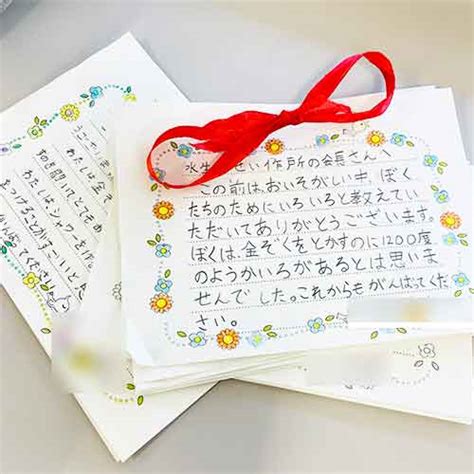 水生せい作所の会長さんへ
この前は、おいそがしい中、ぼく
たちのためにいろいろと教えてい
ただいてありがとうございます。
ぼくは、金ぞくをとかすのに1200度
のようかいろがあるとは思いま
せんでした。これからもがんばってくだ
さい。
わたしは、金ぞ
わたしは、シャワーを作